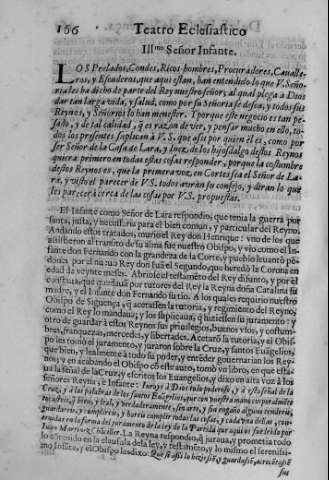 166 Teatro Eclesiastico
Ill.mo Señor Infante.
LOS Prelados, Condes, Ricos-hombres, Procuradores, Cavalle-
ros, y Escuderos, que aqui estan, han entendido lo que V. Seño-
ria les ha dicho de parte del Rey nuestro señor, al qual plega à Dios
dar tan larga vida, y salud, como por su Señoria se desea, y todos sus
Reynos, y Señorios lo han menester. Y porque este negocio es tan pe-
sado, y de tal calidad, q̃ es razon de ver, y pensar mucho en ello, to-
dos los presentes suplican à V. S. que assi por quien èl es, como por
ser Señor de la Casa de Lara, y Iuez de los hijosdalgo destos Reynos
quiera primero en todas estas cosas responder, porque la costumbre
destos Reynos es, que la primera voz, en Cortes sea el Señor de La-
ra, y visto el parecer de V. S. todos avràn su consejo, y diràn lo que
les parecerà cerca de las cosas por V. S. propuestas.
El Infante como Señor de Lara respondio, que tenia la guerra por
santa, justa, y necessaria para el bien comun, y particular del Reyno.
Andando estos tratados, muriò el Rey don Henrique: vno de los que
assistieron al transito de su alma fue nuestro Obispo, y viò como el In-
fante don Fernando con la grandeza de la Corte, y pueblo levantò pe-
dones por el nuevo Rey don Iuan el Segundo, que heredò la Corona en
edad de veynte meses. Abriose el testamẽto del Rey difunto, y por el
constò, que quedavan por tutores del Rey la Reyna doña Catalina su
madre, y el Infante don Fernando su tio. A los quales requiriò nuestro
Obispo de Siguença, q̃ acetassen la tutoria, y regimiento del Reyno,
como el Rey lo mandava; y los suplicava, q̃ hiziessen su juramento, y
otro de guardar à estos Reynos sus privilegios, buenos vsos, y costum-
bres, franquezas, mercedes, y libertades. Acetarõ la tutoria, y el Obis-
po les tomò el juramento, y juraron sobre la Cruz, y santos Euãgelios,
que bien, y lealmente à todo su poder, y entẽder governarian los Rey-
nos; y en acabando el Obispo este auto, tomò vn libro, en que esta-
va la señal de la Cruz, y escritos los Euangelios, y dixo en alta voz à los
señores Reyna, è Infante: Iurays à Dios todo poderoso, y à esta señal de la
Cruz, y à las palabras de los santos Euãgelios, que con vuestra mano corporalmẽte
tocastes, q̃ bien, y leal, y verdaderamente, sin arte, y sin engaño alguno tendreis,
guardareis, y cumplireis, y hareis cumplir todas las cosas, y cada vna dellas, con-
Iuan Martinez Chãciller. La Reyna respondio, q̃ jurava, y prometia todo
lo contenido en la clausula de la ley, y testamẽto, y lo mismo el serenissi-
mo Infante, y el Obispo les dixo: Que si assi lo hiziessen, y guardassen,
sus